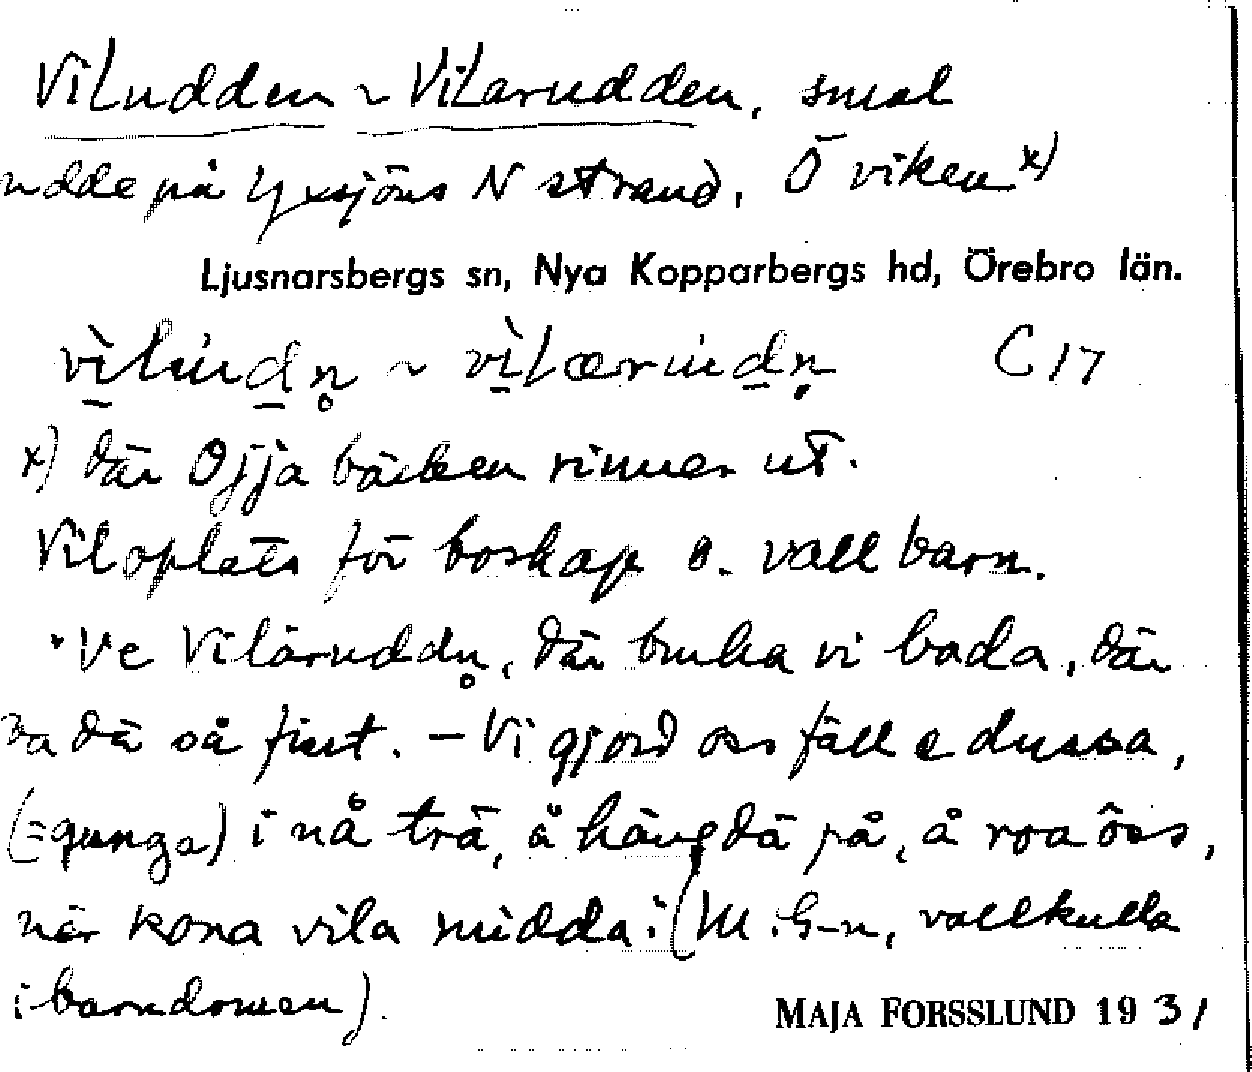 Viludden ~ Vilarudden, smal
udde på Yxsjöns N strand, Ö viken x)
Ljusnarsbergs sn, Nya Kopparbergs hd, Örebro län.
C 17
x) där Ojja bäcken rinner ut.
Viloplats för boskap o. vallbarn.
"Ve Viläruddn̥, där bruka vi bada, där
va dä så fint. – Vi gjord oss fäll e dussa,
(=gunga) i nå trä, å hängdä på, å roa ôss,
när kona vila midda". (M. G-n, vallkulla
i barndomen).
MAJA FORSSLUND 1931